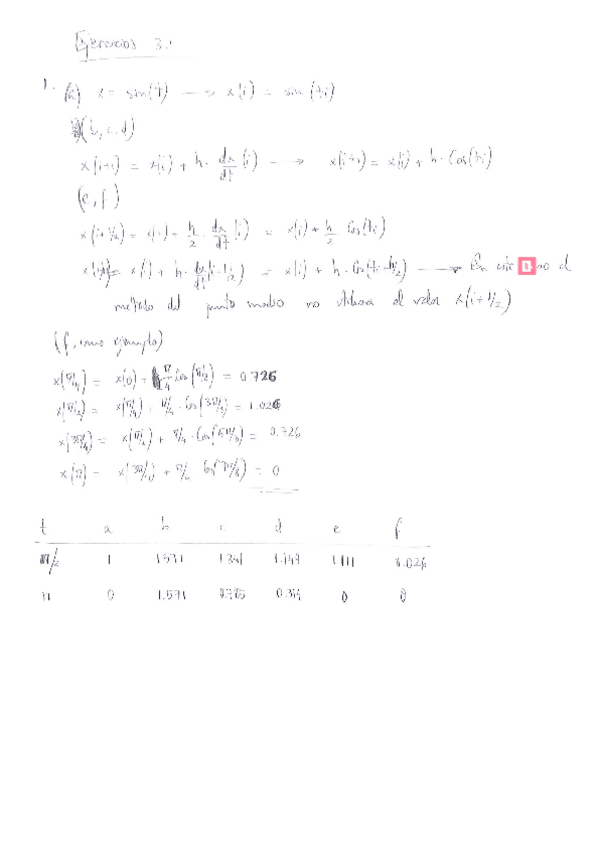 Ejercicios 3.1
1. (a) x = sin(t) → x(i) = sin(ti)
(b, c, d)
x(i+1) = x(i) + h · dx/dt (i) → x(i+1) = x(i) + h · Cos(ti)
(e, f)
x(i+1/2) = x(i) + h/2 · dx/dt (i) = x(i) + h/2 Cos(ti)
= x(i) + h · dx/dt (i+1/2) = x(i) + h · Cos(ti+h/2) → En este el
método del punto medio no utiliza el valor x(i+1/2)
(f, como ejemplo)
x(π/4) = x(0) + π/4 Cos(π/8) = 0.726
x(π/2) = x(π/4) + π/4 · Cos(3π/8) = 1.026
x(3π/4) = x(π/2) + π/4 · Cos(5π/8) = 0.726
x(π) = x(3π/4) + π/4 Cos(7π/8) = 0
t a b c d e f
π/2 1 1.571 1.341 1.149 1.111 1.026
π 0 1.571 0.314 0 0